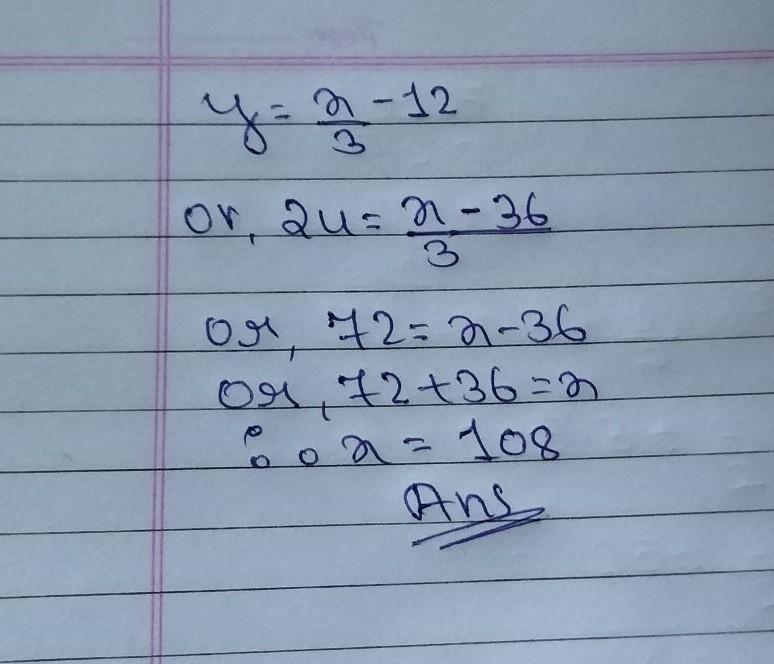 y = x/3 - 12
or, 24 = (x - 36)/3
or, 72 = x - 36
or, 72 + 36 = x
∴ x = 108
Ans